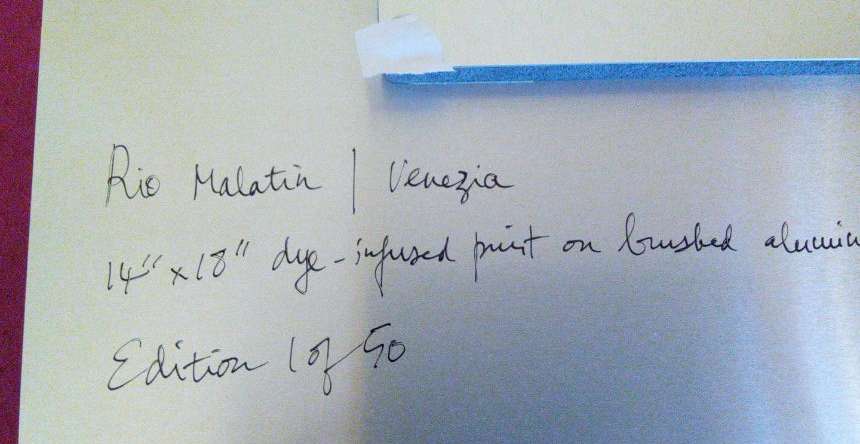 Rio Malatin | Venezia
14" x 18" dye-infused print on brushed alumin
Edition 1 of 50